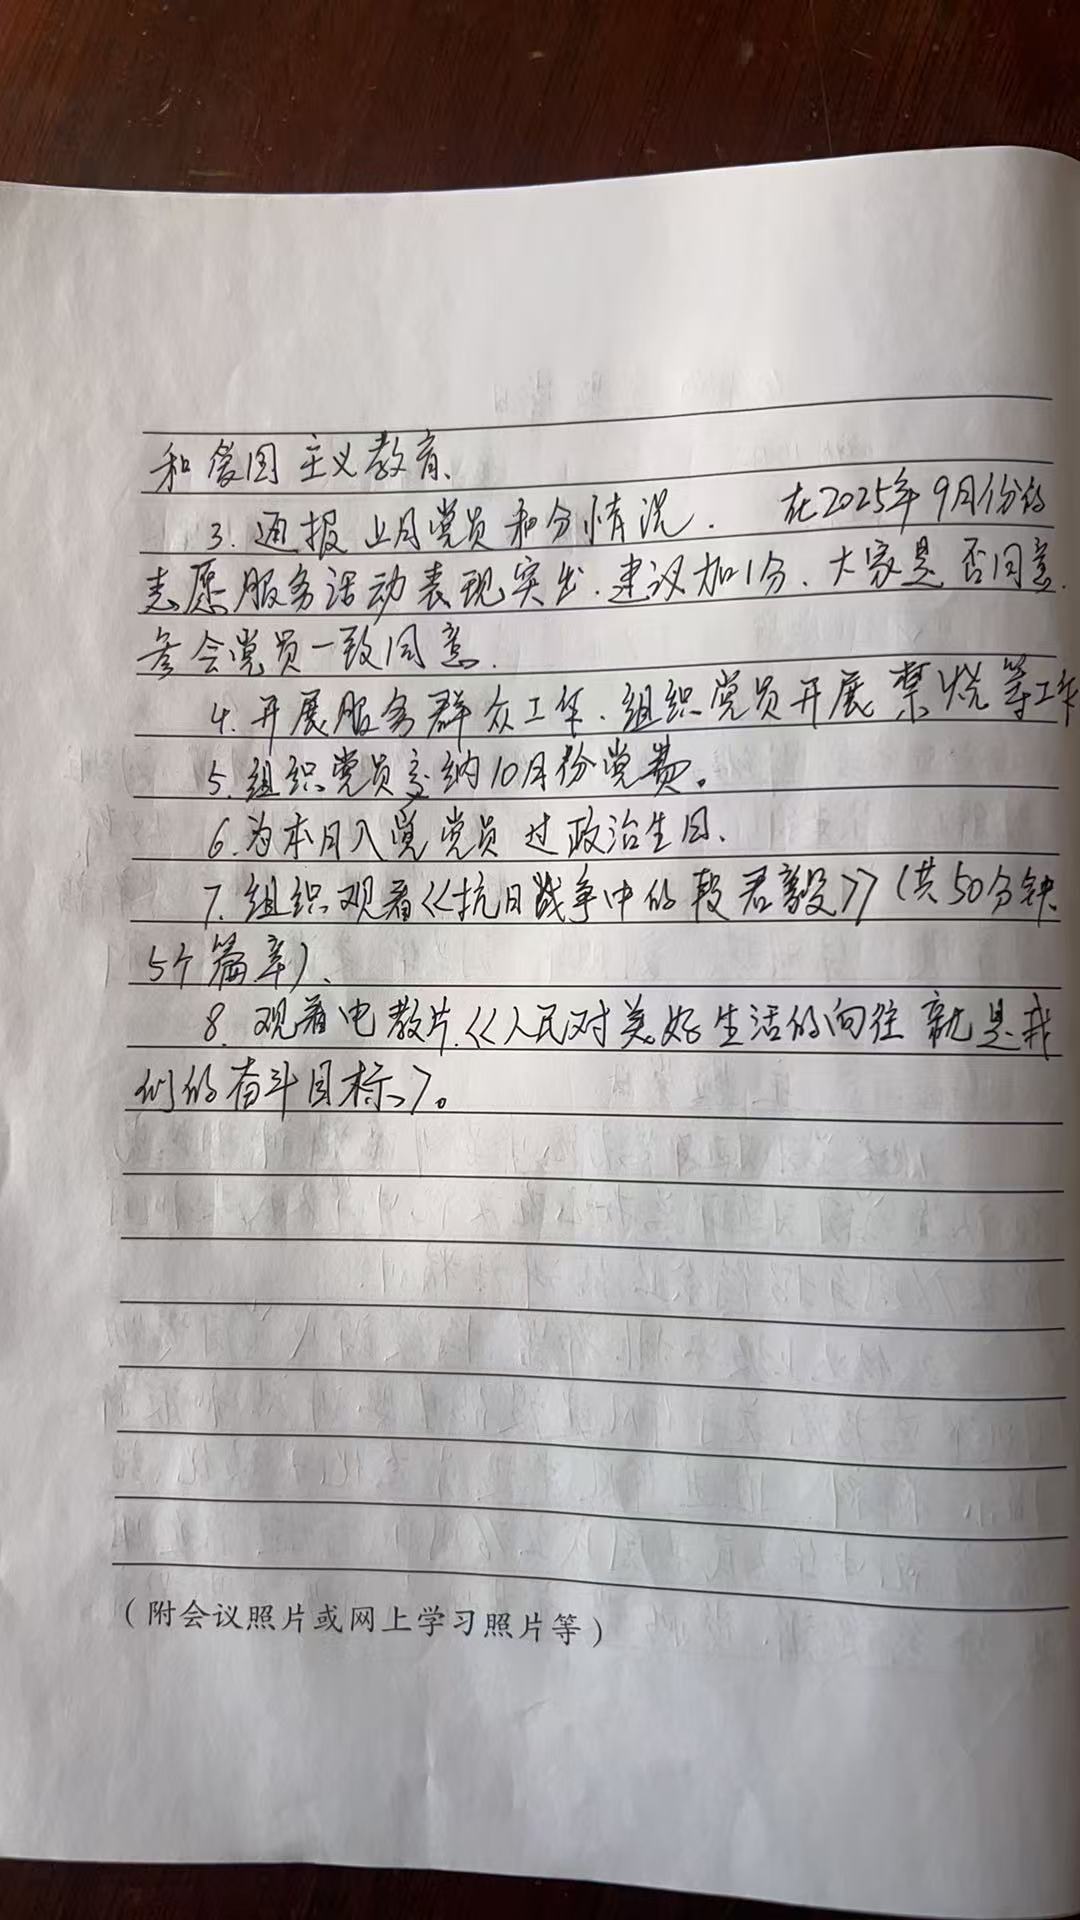 和爱国主义教育、
3. 通报上月党员积分情况. 在2025年9月份的
志愿服务活动表现突出.建议加1分、大家是否同意.
参会党员一致同意.
4. 开展服务群众工作.组织党员开展禁烧等工作
5. 组织党员交纳10月份党费。
6. 为本月入党党员过政治生日、
7. 组织观看《抗日战争中的段君毅》(共50分钟
5个篇章)、
8. 观看电教片.《人民对美好生活的向往就是我
们的奋斗目标》。
(附会议照片或网上学习照片等)